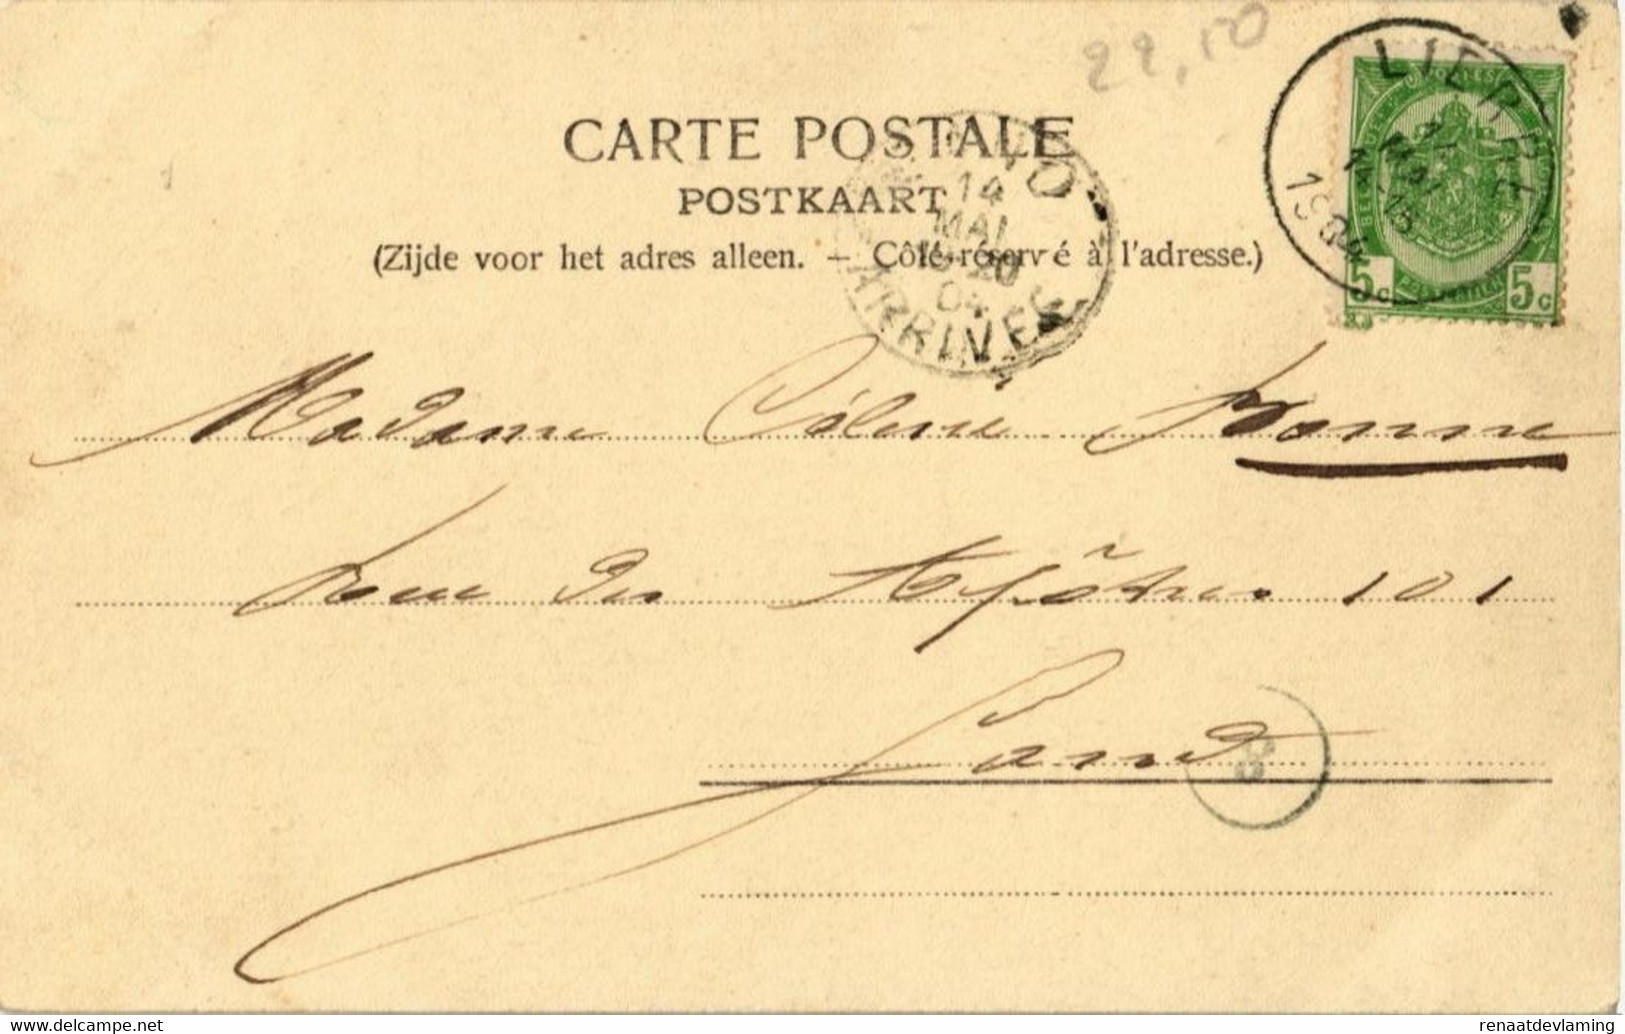 22,50
CARTE POSTALE
POSTKAART
(Zijde voor het adres alleen. — Côté réservé à l'adresse.)
LIERRE
MAI
1904
5c 5c
14
MAI
04
ARRIVEE
Madame Céline Bonne
Rue des Apôtres 101
Gand
8
https://www.delcampe.net
renaatdevlaming